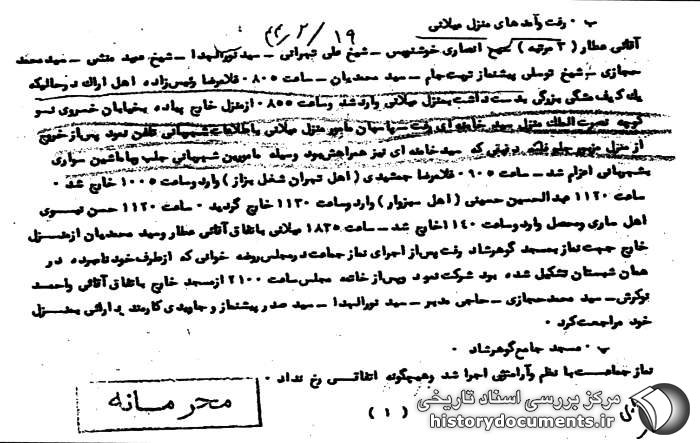 ب • رفت و آمدهای منزل میلانی
۱۹/۲/۴۴
آقائی عطار (۳ مرتبه) سمیح انصاری خوشنویس – شیخ علی تهرانی – سید نورالهدا – شیخ صید منشی – سید محمد
حجازی – شیخ توسلی پیشنماز تربت جام – سید محمدیان – ساعت ۸۰۰ غلامرضا رئیس زاده اهل اراک در حالیکه
یک کیف مشکی بزرگی بدست داشت بمنزل میلانی وارد شد و ساعت ۸۵۵ از منزل خارج پیاده بخیابان خسروی نو
کوچه نصرت الملک منزل سید خامنه ای رفت – پاسبان مامور منزل میلانی با اطلاعات شهربانی تلفن نمود پس از خروج
از منزل در حالیکه سید خامنه ای نیز همراهش بود وسیله مامورین شهربانی جلب و با ماشین سواری
بشهربانی اعزام شد – ساعت ۹۰۵ غلامرضا جمشیدی (اهل تهران شغل بزاز) وارد و ساعت ۱۰۰۵ خارج شد •
ساعت ۱۱۲۰ عبدالحسین حسینی (اهل سبزوار) وارد و ساعت ۱۱۳۰ خارج گردید • ساعت ۱۱۲۰ حسن نیسوی
اهل ساری و محصل وارد و ساعت ۱۱۴۰ خارج شد – ساعت ۱۸۲۵ میلانی باتفاق آقائی عطار و سید محمدیان از منزل
خارج جهت نماز بمسجد گوهرشاد رفت پس از اجرای نماز جماعت در مجلس روضه خوانی که از طرف خود نامبرده در
همان شبستان تشکیل شده بود شرکت نمود و پس از خاتمه مجلس ساعت ۲۱۰۰ از مسجد خارج باتفاق آقائی واحد
نوکرش – سید محمد حجازی – حاجی مدیر – سید نورالهدا – سید صدر پیشنماز و جاویدی کارمند دارائی بمنزل
خود مراجعت کرد •
پ • مسجد جامع گوهرشاد •
نماز جماعت با نظم و آرامش اجرا شد و هیچگونه اتفاقی رخ نداد •
محرمانه
(۱)
مرکز بررسی اسناد تاریخی
historydocuments.ir